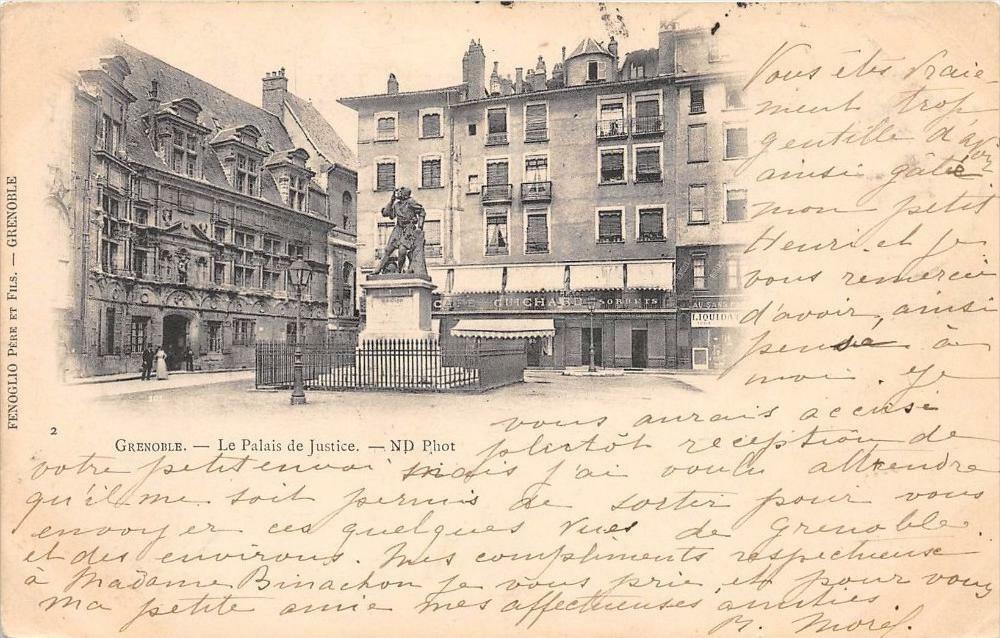 FENOGLIO PÈRE ET FILS. — GRENOBLE
CAFE GUICHARD SORBETS
LIQUIDAT
2
GRENOBLE. — Le Palais de Justice. — ND Phot
Vous êtes vraie
ment trop
gentille d'avoir
ainsi gâtée
mon petit
Henri et je
vous remercie
d'avoir, ainsi
pensé à
moi. Je
vous aurais accusé
plutôt réception de
votre petit envoi mais j'ai voulu attendre
qu'il me soit permis de sortir pour vous
envoyer ces quelques vues de Grenoble
et des environs. Mes compliments respectueuse
à Madame Binachon je vous prie et pour vous
ma petite amie mes affectueuses amitiés
Morel